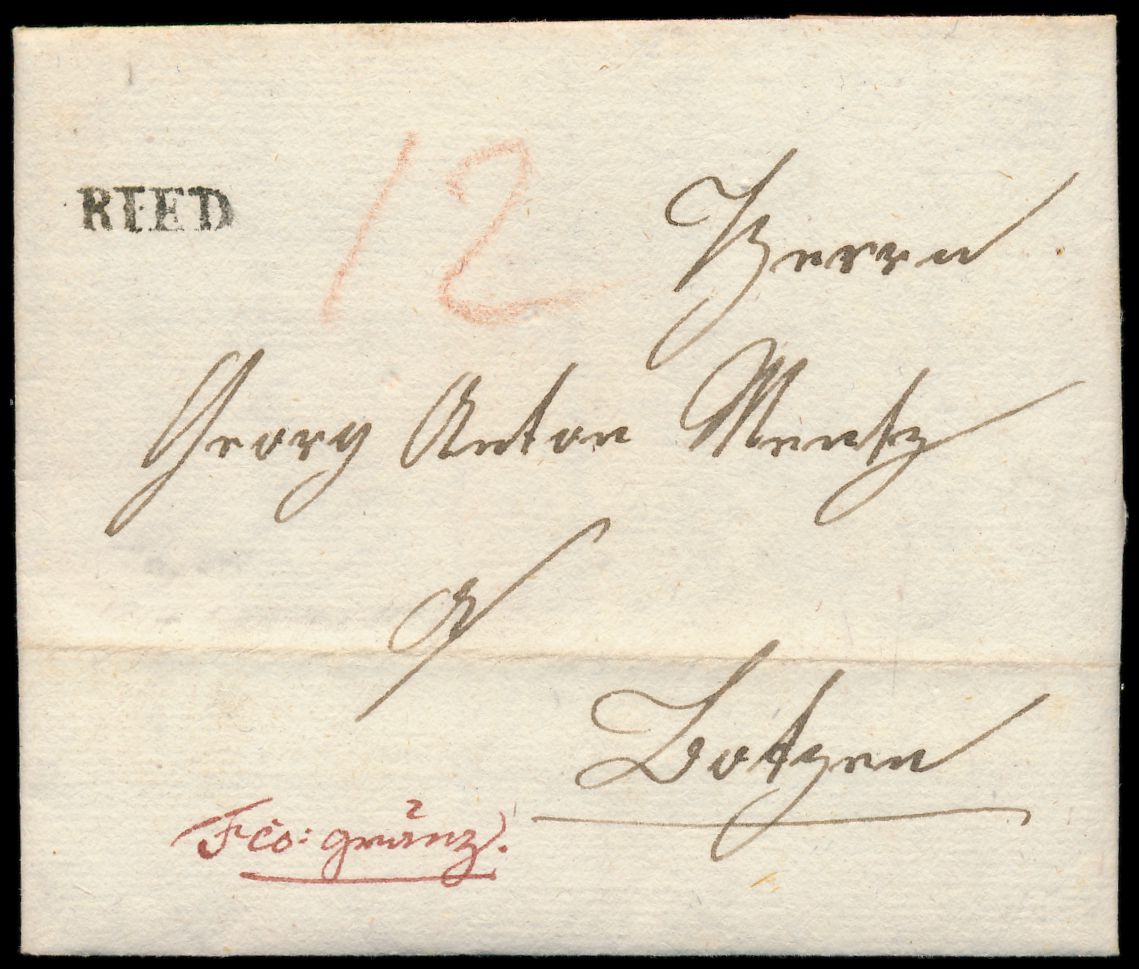 RIED
12
Herrn
Georg Anton Mentz
Botzen
Fco: gränz.